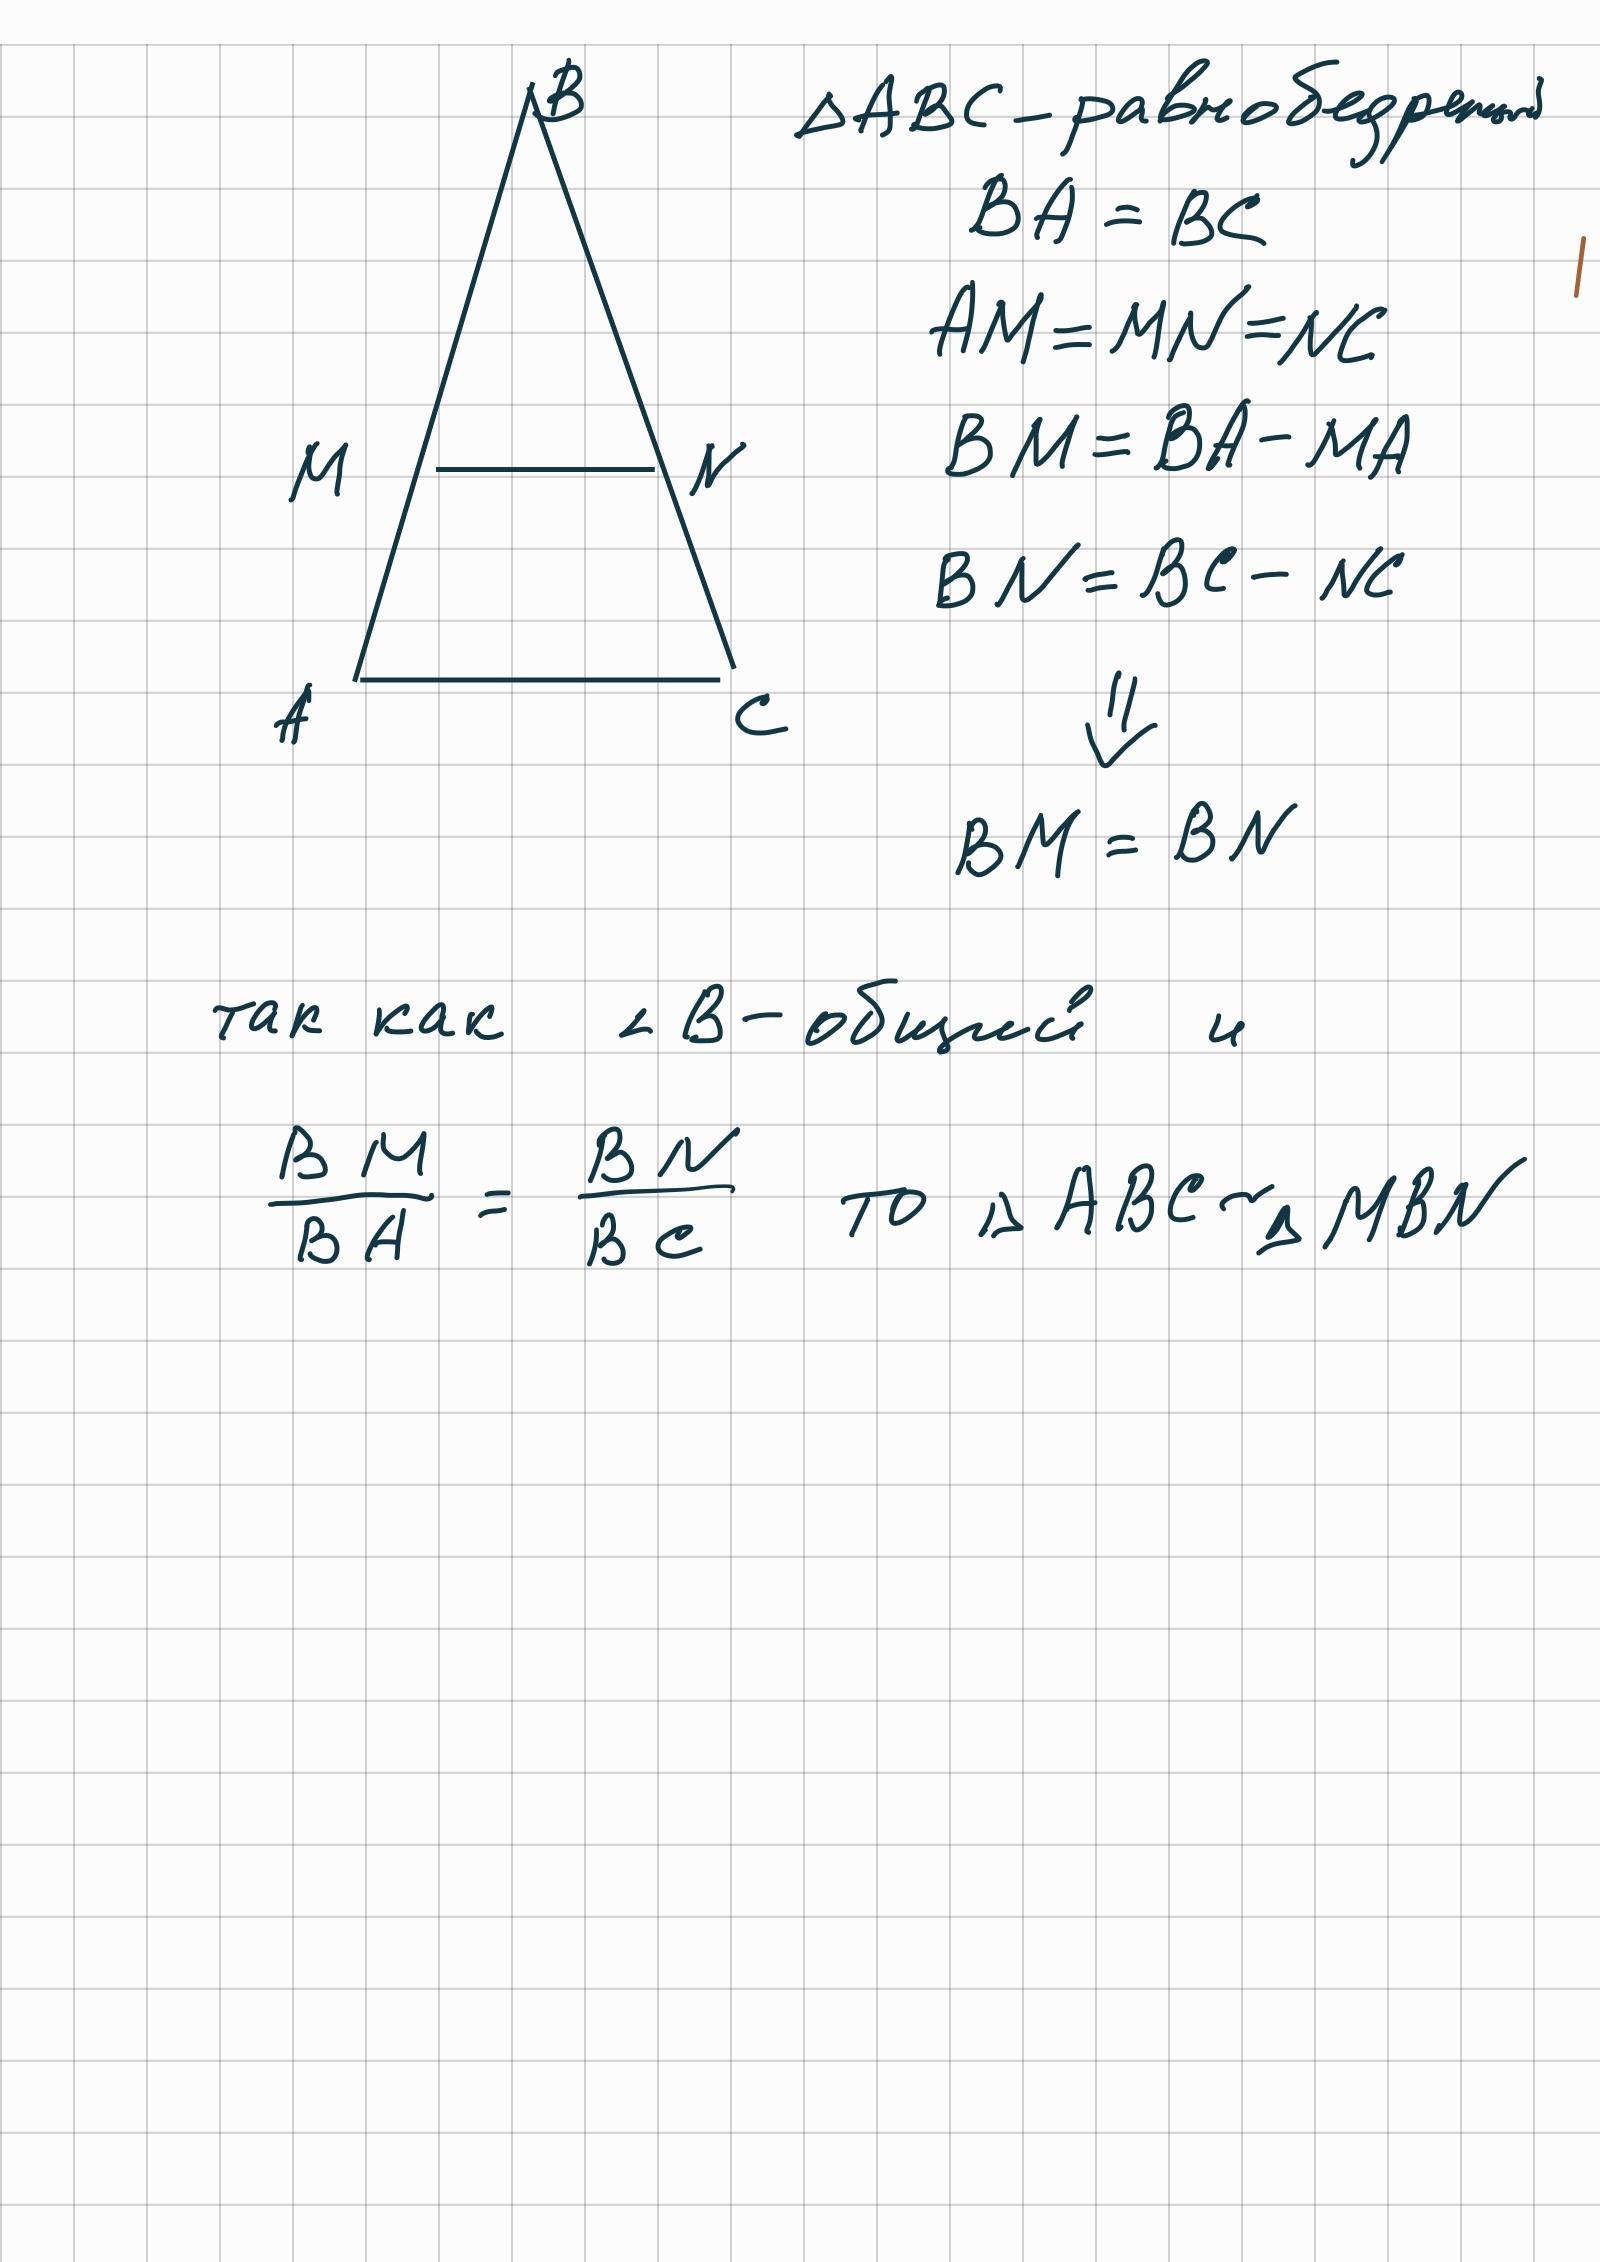 B
△ABC - равнобедренный
BA = BC
AM = MN = NC
M
N
BM = BA - MA
BN = BC - NC
A
C
⇓
BM = BN
так как ∠B - общий и
BM/BA = BN/BC то △ABC ~ △MBN